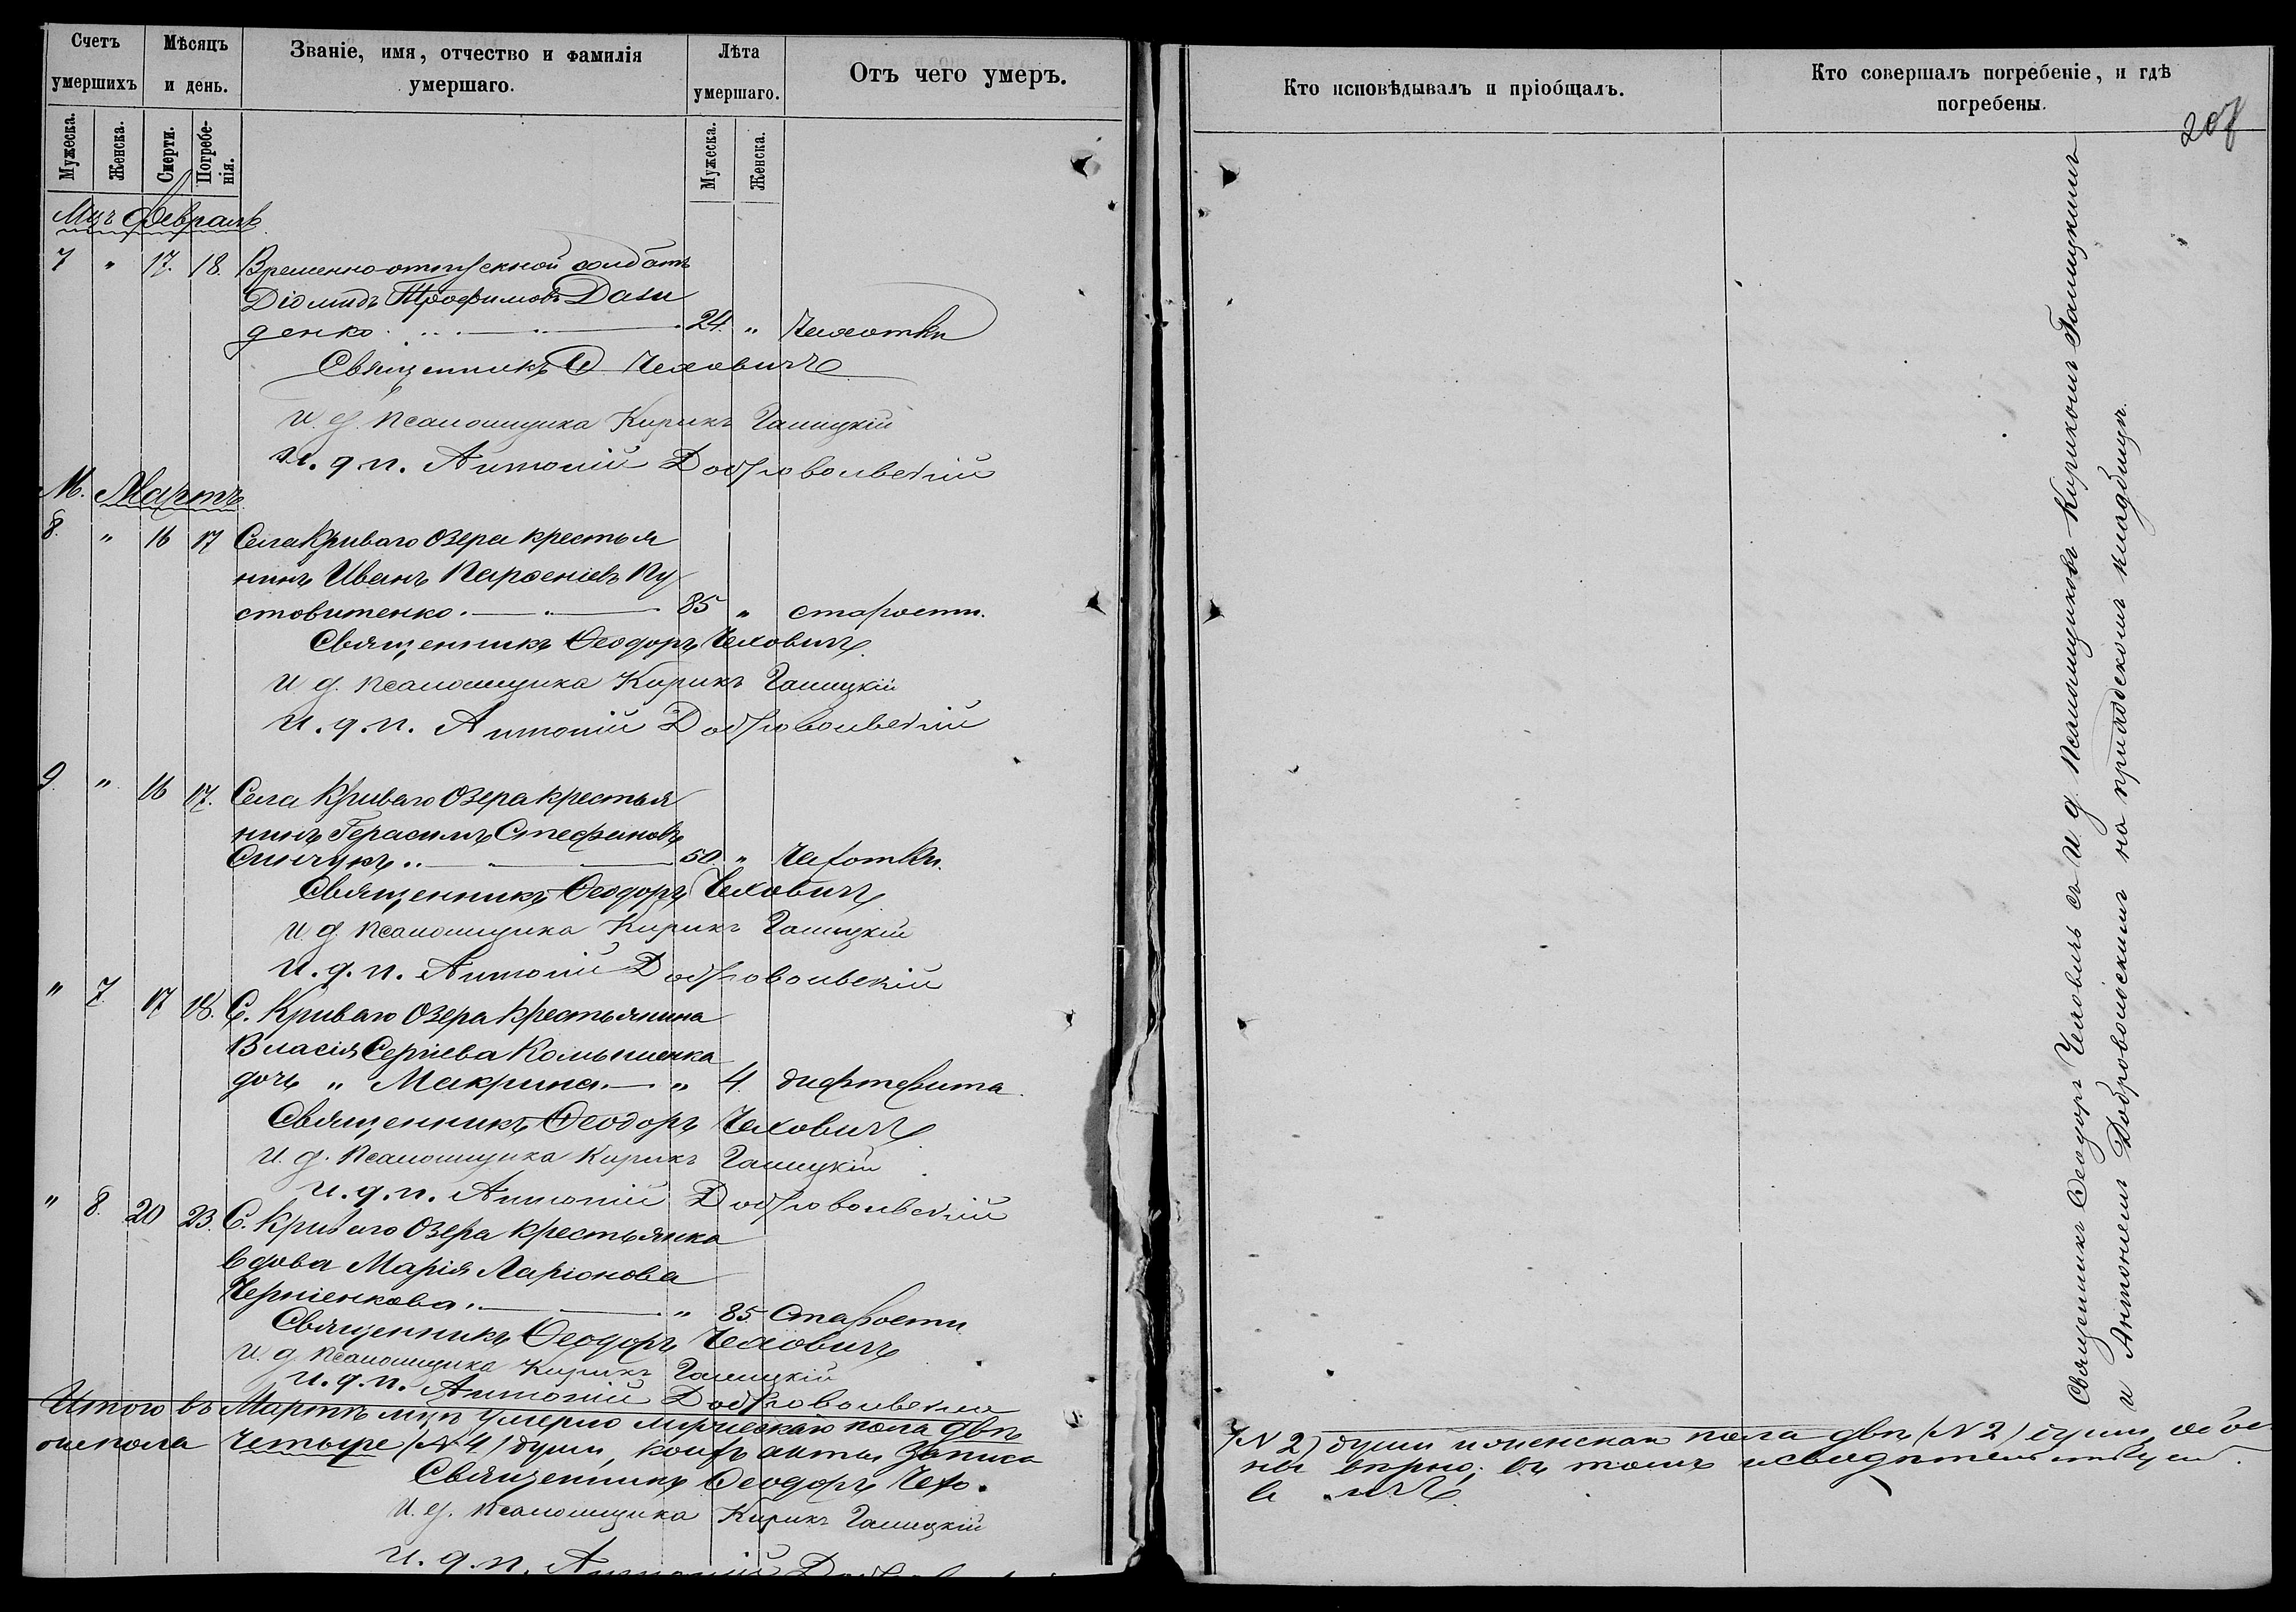 Счетъ умершихъ
Мѣсяцъ и день.
Званіе, имя, отчество и фамилія умершаго.
Лѣта умершаго.
Отъ чего умеръ.
Мужеска.
Женска.
Смерти.
Погребе-
нія.
Мужеска.
Женска.
Мцъ Февраль
7 " 17. 18. Временно-отпускной солдатъ
Діомидъ Трофимовъ Дави
денко 24. " Чахотки
Священникъ Ѳ Чеховичъ
И. д. псаломщика Кирикъ Галицкій
и. д. п. Антоній Добровольскій
М. Мартъ
8. " 16 17 Села Криваго Озера крестья
нинъ Иванъ Парѳеніевъ Пу
стовитенко. 85 " старости.
Священникъ Ѳеодоръ Чеховичъ
И д. псаломщика Кирикъ Галицкій
и. д. п. Антоній Добровольскій
9. " 16 17. Села Криваго Озера крестья
нинъ Герасимъ Стефановъ
50. " Чахотки.
Священникъ Ѳеодоръ Чеховичъ
И. д. псаломщика Кирикъ Галицкій
и. д. п. Антоній Добровольскій
" 7. 17 18. С. Криваго Озера крестьянина
Власія Сергіева
дочь " Макрина " 4. дифтерита.
Священникъ Ѳеодоръ Чеховичъ
И. д. псаломщика Кирикъ Галицкій
и. д. п. Антоній Добровольскій
" 8. 20 23. С. Криваго Озера крестьянка
вдова Марія Ларіонова
" 85 Старости
Священникъ Ѳеодоръ Чеховичъ
И. д. псаломщика Кирикъ Галицкій
и. д. п. Антоній Добровольскій
Итого въ Мартѣ мцѣ умерло мужескаго пола двѣ
пола четыре (№ 4) души, коихъ акты записа
Священникъ Ѳеодоръ Чехо.
И. д. псаломщика Кирикъ Галицкій
и. д. п. Антоній
Кто исповѣдывалъ и пріобщалъ.
Кто совершалъ погребеніе, и гдѣ погребены.
207
Священникъ Ѳеодоръ Чеховичъ съ И. д. псаломщиковъ Кирикомъ Галицкимъ
и Антоніемъ Добровольскимъ на приходскомъ кладбищѣ.
(№ 2) души и женскаго пола двѣ (№ 2) души, обое
ны вѣрно; въ томъ и свидѣтельствуемъ.